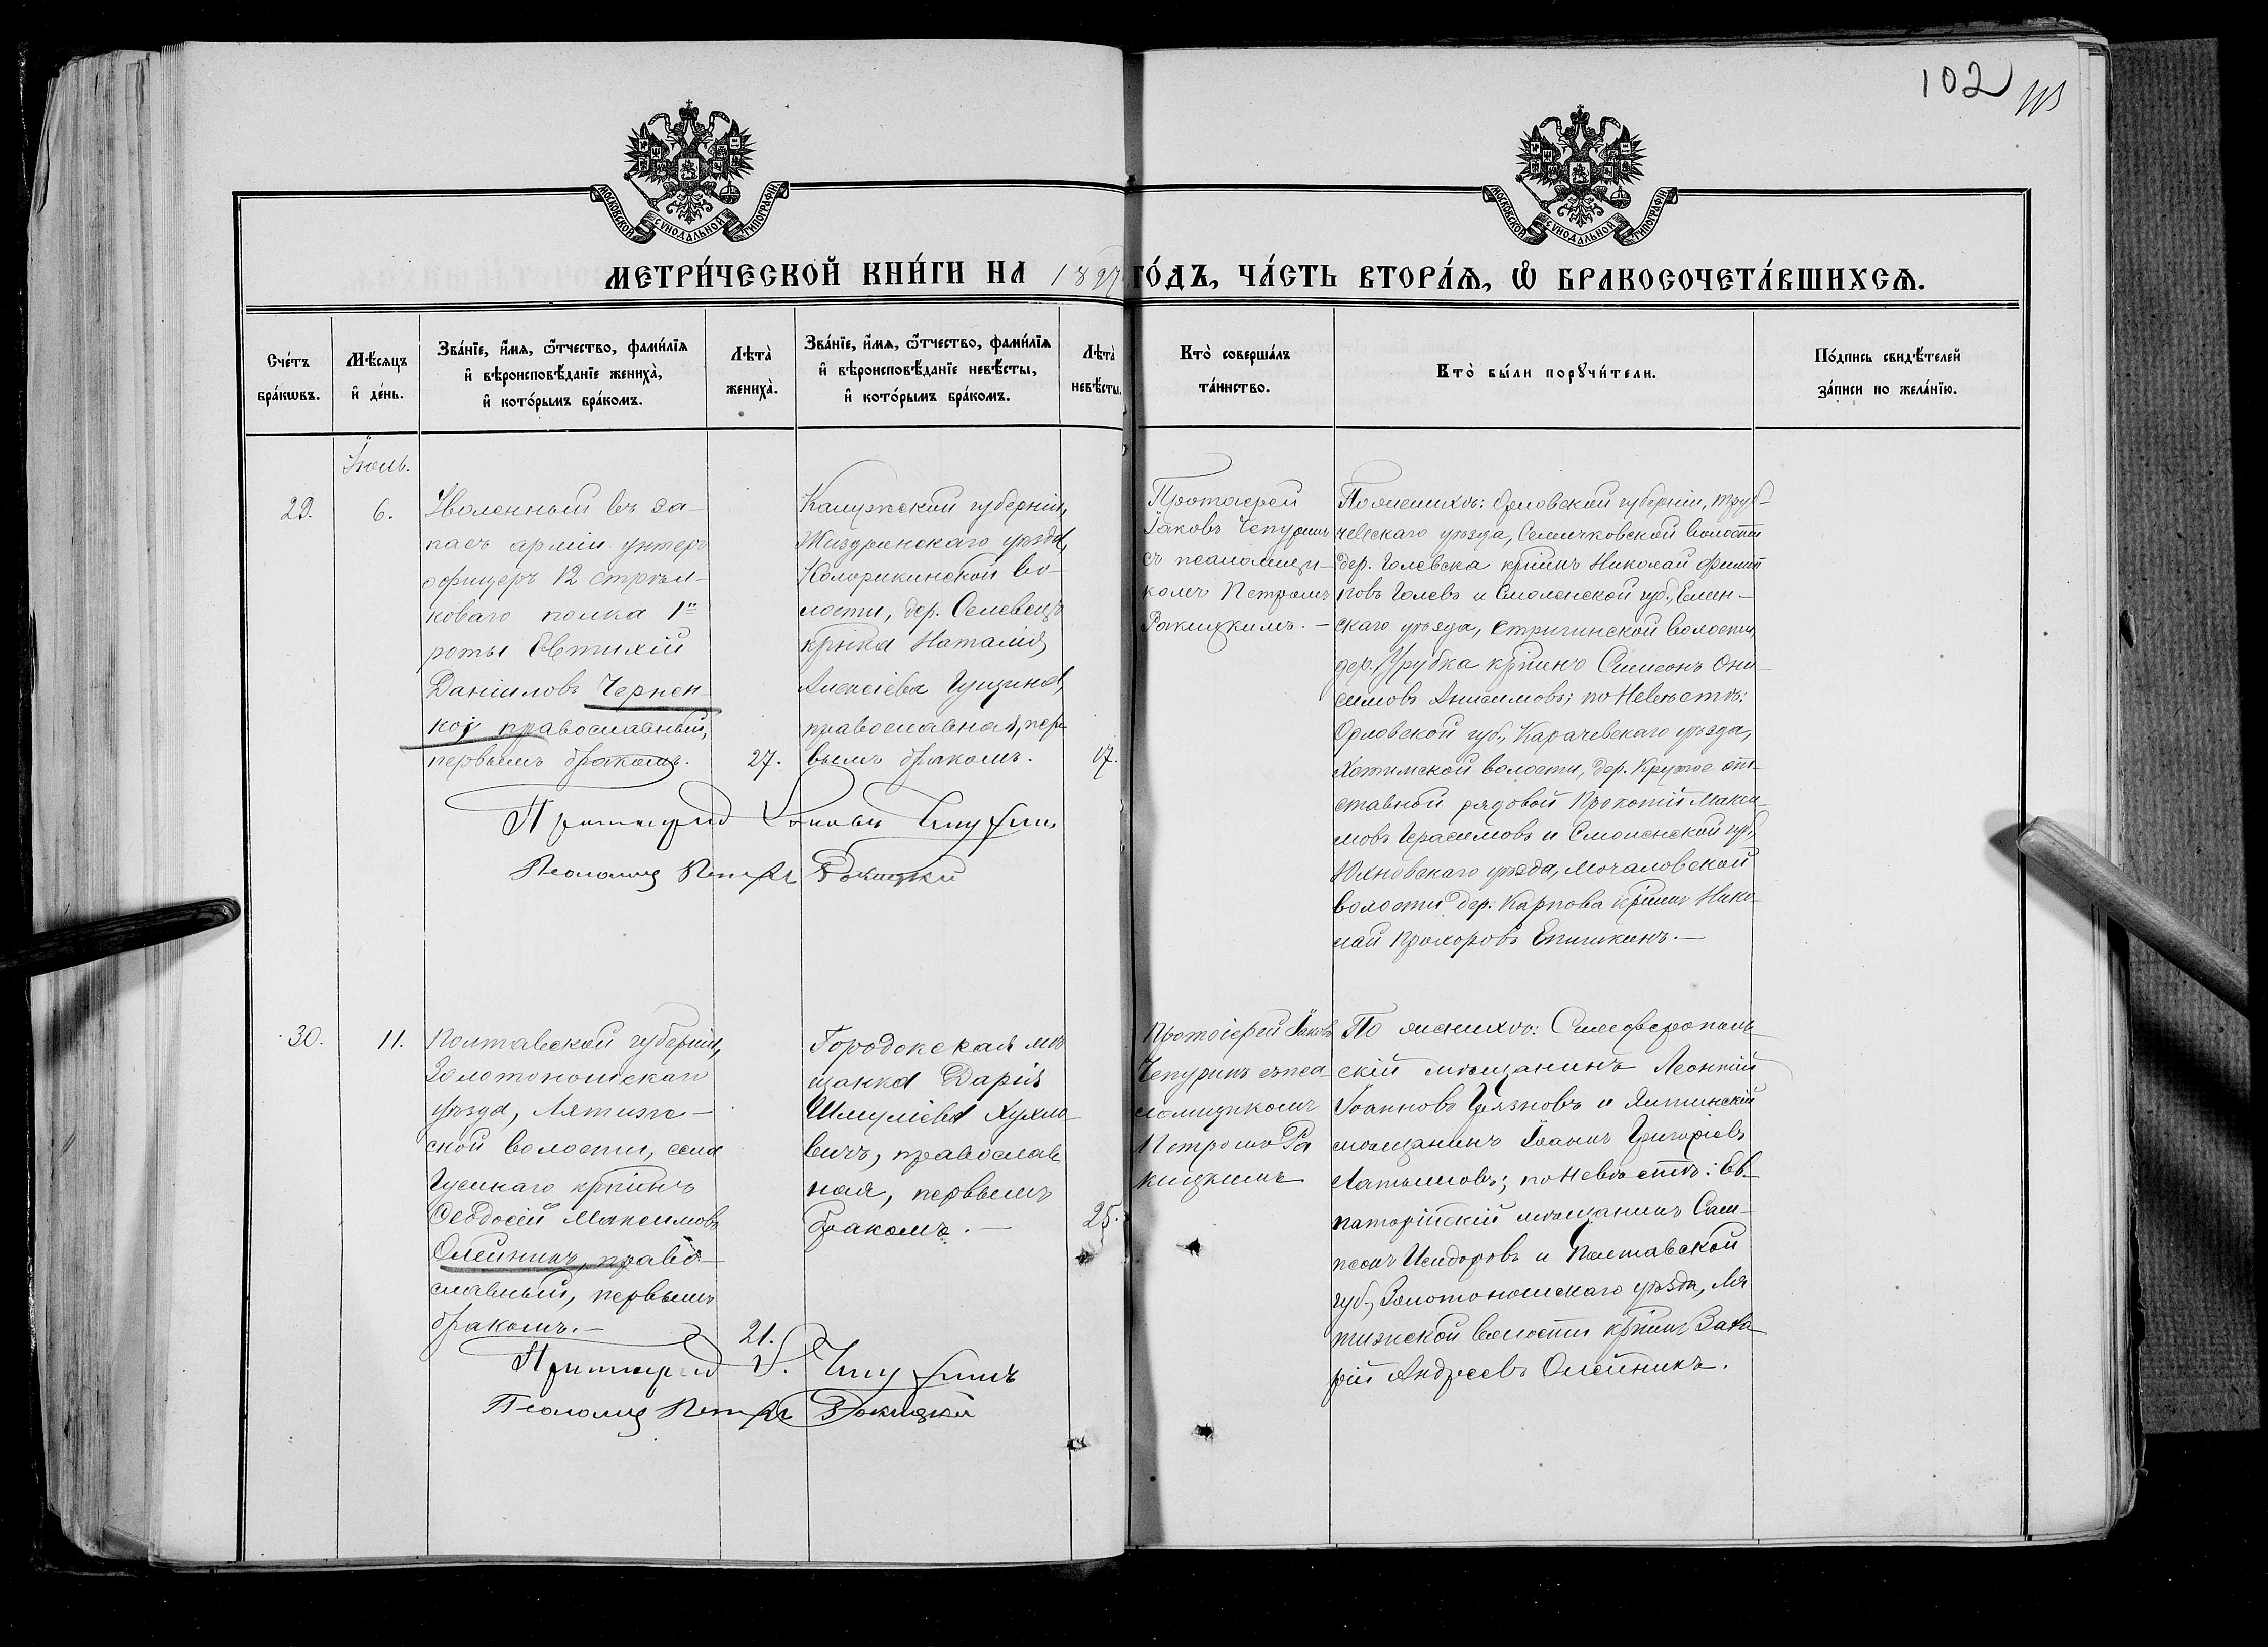 102
МОСКОВСКОЙ СѴНОДАЛЬНОЙ ТИПОГРАФІИ
МОСКОВСКОЙ СѴНОДАЛЬНОЙ ТИПОГРАФІИ
МЕТРИ́ЧЕСКОЙ КНИ́ГИ НА 1897 ГО́ДЪ, ЧА́СТЬ ВТОРА́Ѧ, Ѡ҆ БРАКОСОЧЕТА́ВШИХСѦ.
Сче́тъ
бра́кѡвъ.
Мѣ́сяцъ
и҆ де́нь.
Зва́нїе, и҆́мя, ѻ҆́тчество, фами́лїя
и҆ вѣроисповѣ́данїе жениха̀,
и҆ кото́рымъ бра́комъ.
Лѣта̀
жениха̀.
Зва́нїе, и҆́мя, ѻ҆́тчество, фами́лїя
и҆ вѣроисповѣ́данїе невѣ́сты,
и҆ кото́рымъ бра́комъ.
Лѣта̀
невѣ́сты.
Кто̀ соверша́лъ
та́инство.
Кто̀ бы́ли порꙋчи́тели.
По́дпись свидѣ́телей
за́писи по жела́нїю.
Іюль.
29.
6.
Уволенный въ за-
пасъ арміи унтеръ
офицеръ 12 стрѣл-
коваго полка 1й
роты Евтихій
Даніиловъ Чернен
кої православный,
первымъ бракомъ.
27.
Калужской губерніи,
Жиздринскаго уѣзда,
во-
лости, дер.
крѣка Наталія
Алексіева
православная, пер
вымъ бракомъ.
17.
Протоіерей
Іаковъ Чепуринъ
съ псаломщи-
комъ Петромъ
Ракицкимъ. —
По женихѣ: Орловской губерніи, Труб-
чевскаго уѣзда, Селичковской волости
дер. Голевска крѣинъ Николай Филип
повъ Голевъ и Смоленской губ., Ельнин-
скаго уѣзда, Стригинской волости,
дер. крѣинъ Симеонъ Они
симовъ Анисимовъ; по невѣстѣ:
Орловской губ., Карачевскаго уѣзда,
Хотимской волости, дер. Крутое от-
ставной рядовой Прокопій Макси-
мовъ Герасимовъ и Смоленской губ.,
Юхновскаго уѣзда, Мочаловской
волости дер. Карпова крѣинъ Нико-
лай Прохоровъ Епишкинъ. —
Протоіерей Іаковъ Чепуринъ
Псаломщ Петръ Ракицкій
30.
11.
Полтавской губерніи,
Золотоношскаго
уѣзда, Ляпинс-
ской волости, села
крѣинъ
Ѳеодосій Максимовъ
Олейникъ, право-
славный, первымъ
бракомъ. —
21.
Городокская мѣ
щанка Дарія
Шмуліева
вичъ, православ
ная, первымъ
бракомъ. —
25.
Протоіерей Іаковъ
Чепуринъ съ пса-
ломщикомъ
Петромъ Ра
кицкимъ
По женихѣ: Симферополь-
скій мѣщанинъ Леонтій
Іоанновъ и Ялтинскій
мѣщанинъ Іоаннъ Григоріевъ
Латышовъ; по невѣстѣ: Ев-
паторійскій мѣщанинъ Сам-
псонъ Исидоровъ и Полтавской
губ., Золотоношскаго уѣзда,
волости крѣинъ Заха
рій Андреевъ Олейникъ.
Протоіерей І. Чепуринъ
Псаломщ Петръ Ракицкій